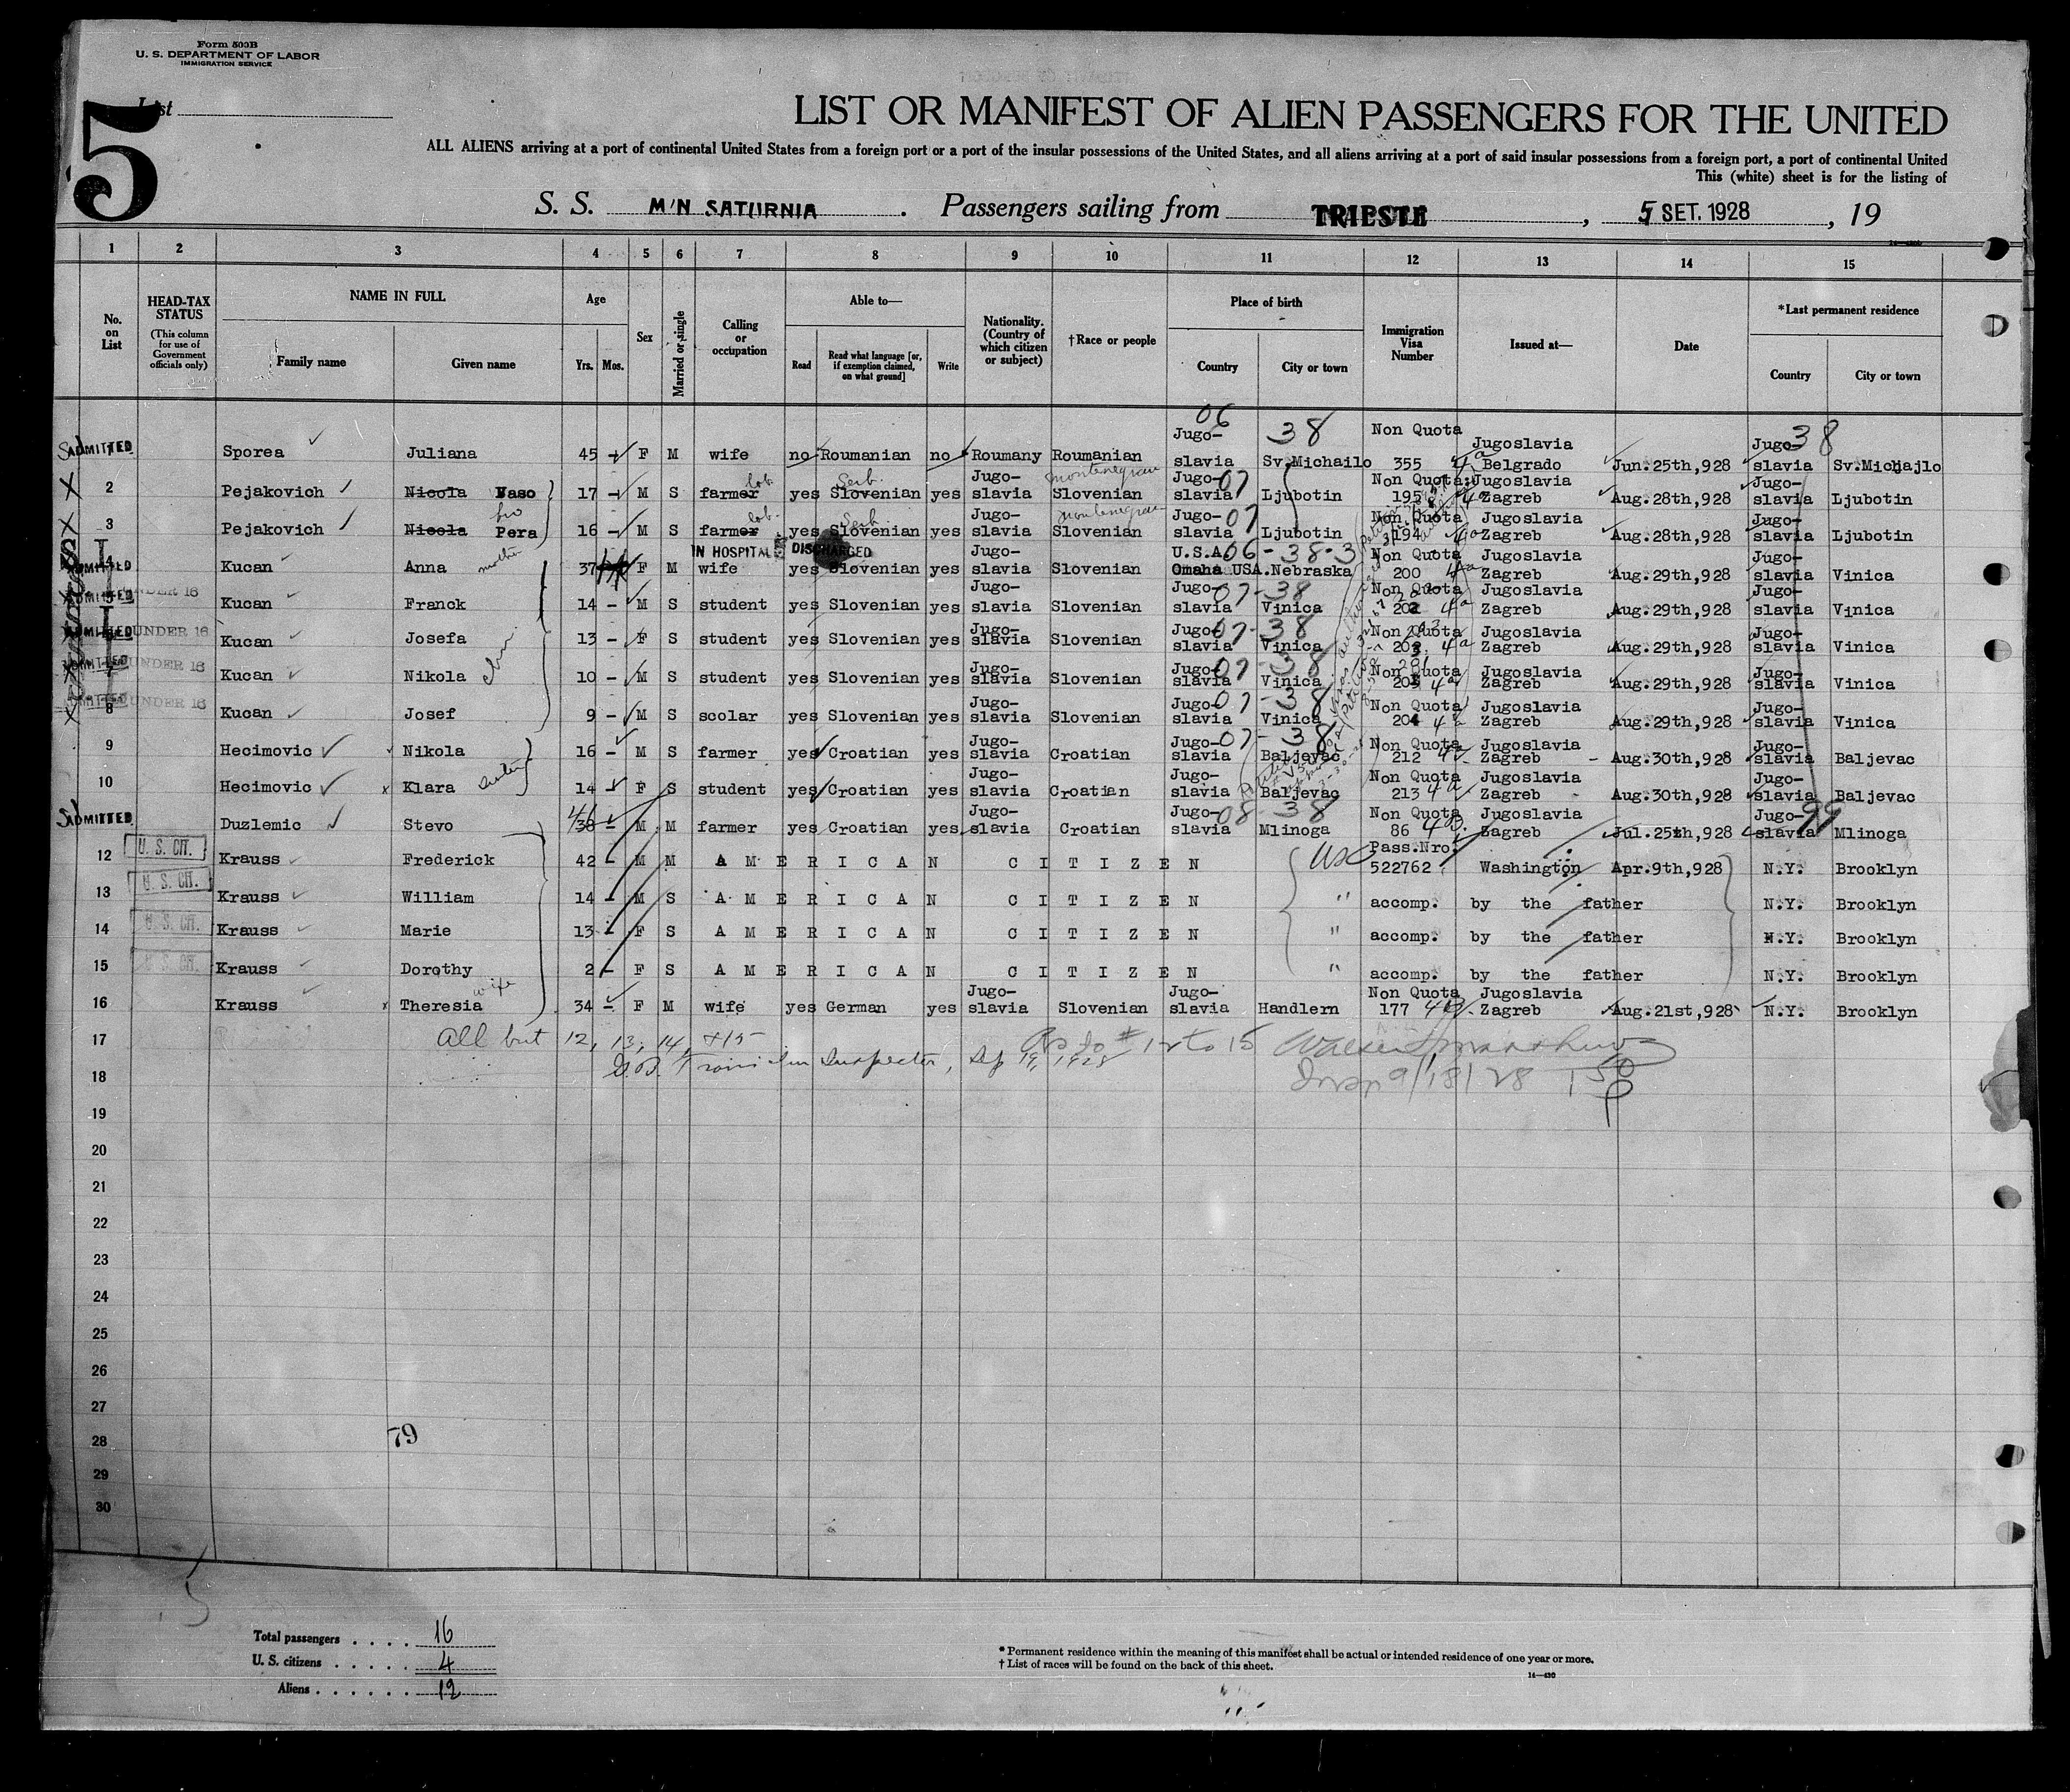 Form 500B
U. S. DEPARTMENT OF LABOR
IMMIGRATION SERVICE
List
5
LIST OR MANIFEST OF ALIEN PASSENGERS FOR THE UNITED
ALL ALIENS arriving at a port of continental United States from a foreign port or a port of the insular possessions of the United States, and all aliens arriving at a port of said insular possessions from a foreign port, a port of continental United
This (white) sheet is for the listing of
S. S. M/N SATURNIA. Passengers sailing from TRIESTE, 5 SET. 1928, 19
1 2 3 4 5 6 7 8 9 10 11 12 13 14 15
No. on List
HEAD-TAX STATUS
(This column for use of Government officials only)
NAME IN FULL
Family name Given name
Age
Yrs. Mos.
Sex
Married or single
Calling or occupation
Able to—
Read Read what language [or, if exemption claimed, on what ground] Write
Nationality. (Country of which citizen or subject)
†Race or people
Place of birth
Country City or town
Immigration Visa Number
Issued at—
Date
*Last permanent residence
Country City or town
06 38 38
ADMITTED Sporea Juliana 45 - F M wife no Roumanian no Roumany Roumanian Jugo-slavia Sv.Michailo Non Quota 355 Jugoslavia Belgrado Jun.25th,928 Jugo-slavia Sv.Michajlo
2 Pejakovich Nicola Vaso 17 - M S farmer lab. yes Slovenian Serb. yes Jugo-slavia Slovenian montenegrian Jugo-slavia 07 Ljubotin Non Quota 195 4a Jugoslavia Zagreb Aug.28th,928 Jugo-slavia Ljubotin
3 Pejakovich Nicola Pera bro 16 - M S farmer lab. yes Slovenian Serb yes Jugo-slavia Slovenian montenegrian Jugo-slavia 07 Ljubotin Non Quota 194 Jugoslavia Zagreb Aug.28th,928 Jugo-slavia Ljubotin
IN HOSPITAL DISCHARGED
4 ADMITTED Kucan Anna mother 37 F M wife yes Slovenian yes Jugo-slavia Slovenian U.S.A. 06-38-3 Omaha USA.Nebraska Non Quota 200 4a Jugoslavia Zagreb Aug.29th,928 Jugo-slavia Vinica
5 UNDER 16 Kucan Franck 14 - M S student yes Slovenian yes Jugo-slavia Slovenian Jugo-slavia 07-38 Vinica Non Quota 202 4a Jugoslavia Zagreb Aug.29th,928 Jugo-slavia Vinica
ADMITTED UNDER 16 Kucan Josefa 13 - F S student yes Slovenian yes Jugo-slavia Slovenian Jugo-slavia 07-38 Vinica Non Quota 203 4a Jugoslavia Zagreb Aug.29th,928 Jugo-slavia Vinica
7 ADMITTED UNDER 16 Kucan Nikola 10 - M S student yes Slovenian yes Jugo-slavia Slovenian Jugo-slavia 07-38 Vinica Non Quota 201 4a Jugoslavia Zagreb Aug.29th,928 Jugo-slavia Vinica
8 ADMITTED UNDER 16 Kucan Josef 9 - M S scolar yes Slovenian yes Jugo-slavia Slovenian Jugo-slavia 07-38 Vinica Non Quota 204 4a Jugoslavia Zagreb Aug.29th,928 Jugo-slavia Vinica
9 Hecimovic Nikola 16 - M S farmer yes Croatian yes Jugo-slavia Croatian Jugo-slavia 07-38 Baljevac Non Quota 212 4a Jugoslavia Zagreb - Aug.30th,928 Jugo-slavia Baljevac
10 Hecimovic x Klara sister 14 - F S student yes Croatian yes Jugo-slavia Croatian Jugo-slavia Baljevac Non Quota 213 4a Jugoslavia Zagreb - Aug.30th,928 Jugo-slavia Baljevac
ADMITTED Duzlemic Stevo 38 46 M M farmer yes Croatian yes Jugo-slavia Croatian Jugo-slavia 08-38 Mlinoga Non Quota 86 4B. Jugoslavia Zagreb Jul.25th,928 Jugo-slavia 99 Mlinoga
12 U. S. CIT. Krauss Frederick 42 - M M AMERICAN CITIZEN USC Pass.Nro. 522762 Washington Apr.9th,928 N.Y. Brooklyn
13 U. S. CIT. Krauss William 14 - M S AMERICAN CITIZEN " accomp. by the father N.Y. Brooklyn
14 U. S. CIT. Krauss Marie 13 - F S AMERICAN CITIZEN " accomp. by the father N.Y. Brooklyn
15 U. S. CIT. Krauss Dorothy 2 - F S AMERICAN CITIZEN " accomp. by the father N.Y. Brooklyn
16 Krauss x Theresia wife 34 - F M wife yes German yes Jugo-slavia Slovenian Jugo-slavia Handlern Non Quota 177 4B Jugoslavia Zagreb Aug.21st,928 N.Y. Brooklyn
17 All but 12, 13, 14, +15 As to # 12 to 15
Inspector, Sep 19, 1928
18 Insp 9/18/28
19
20
21
22
23
24
25
26
27
79
28
29
30
Total passengers . . . . 16
U. S. citizens . . . . . 4
Aliens . . . . . . 12
* Permanent residence within the meaning of this manifest shall be actual or intended residence of one year or more.
† List of races will be found on the back of this sheet.
14—430